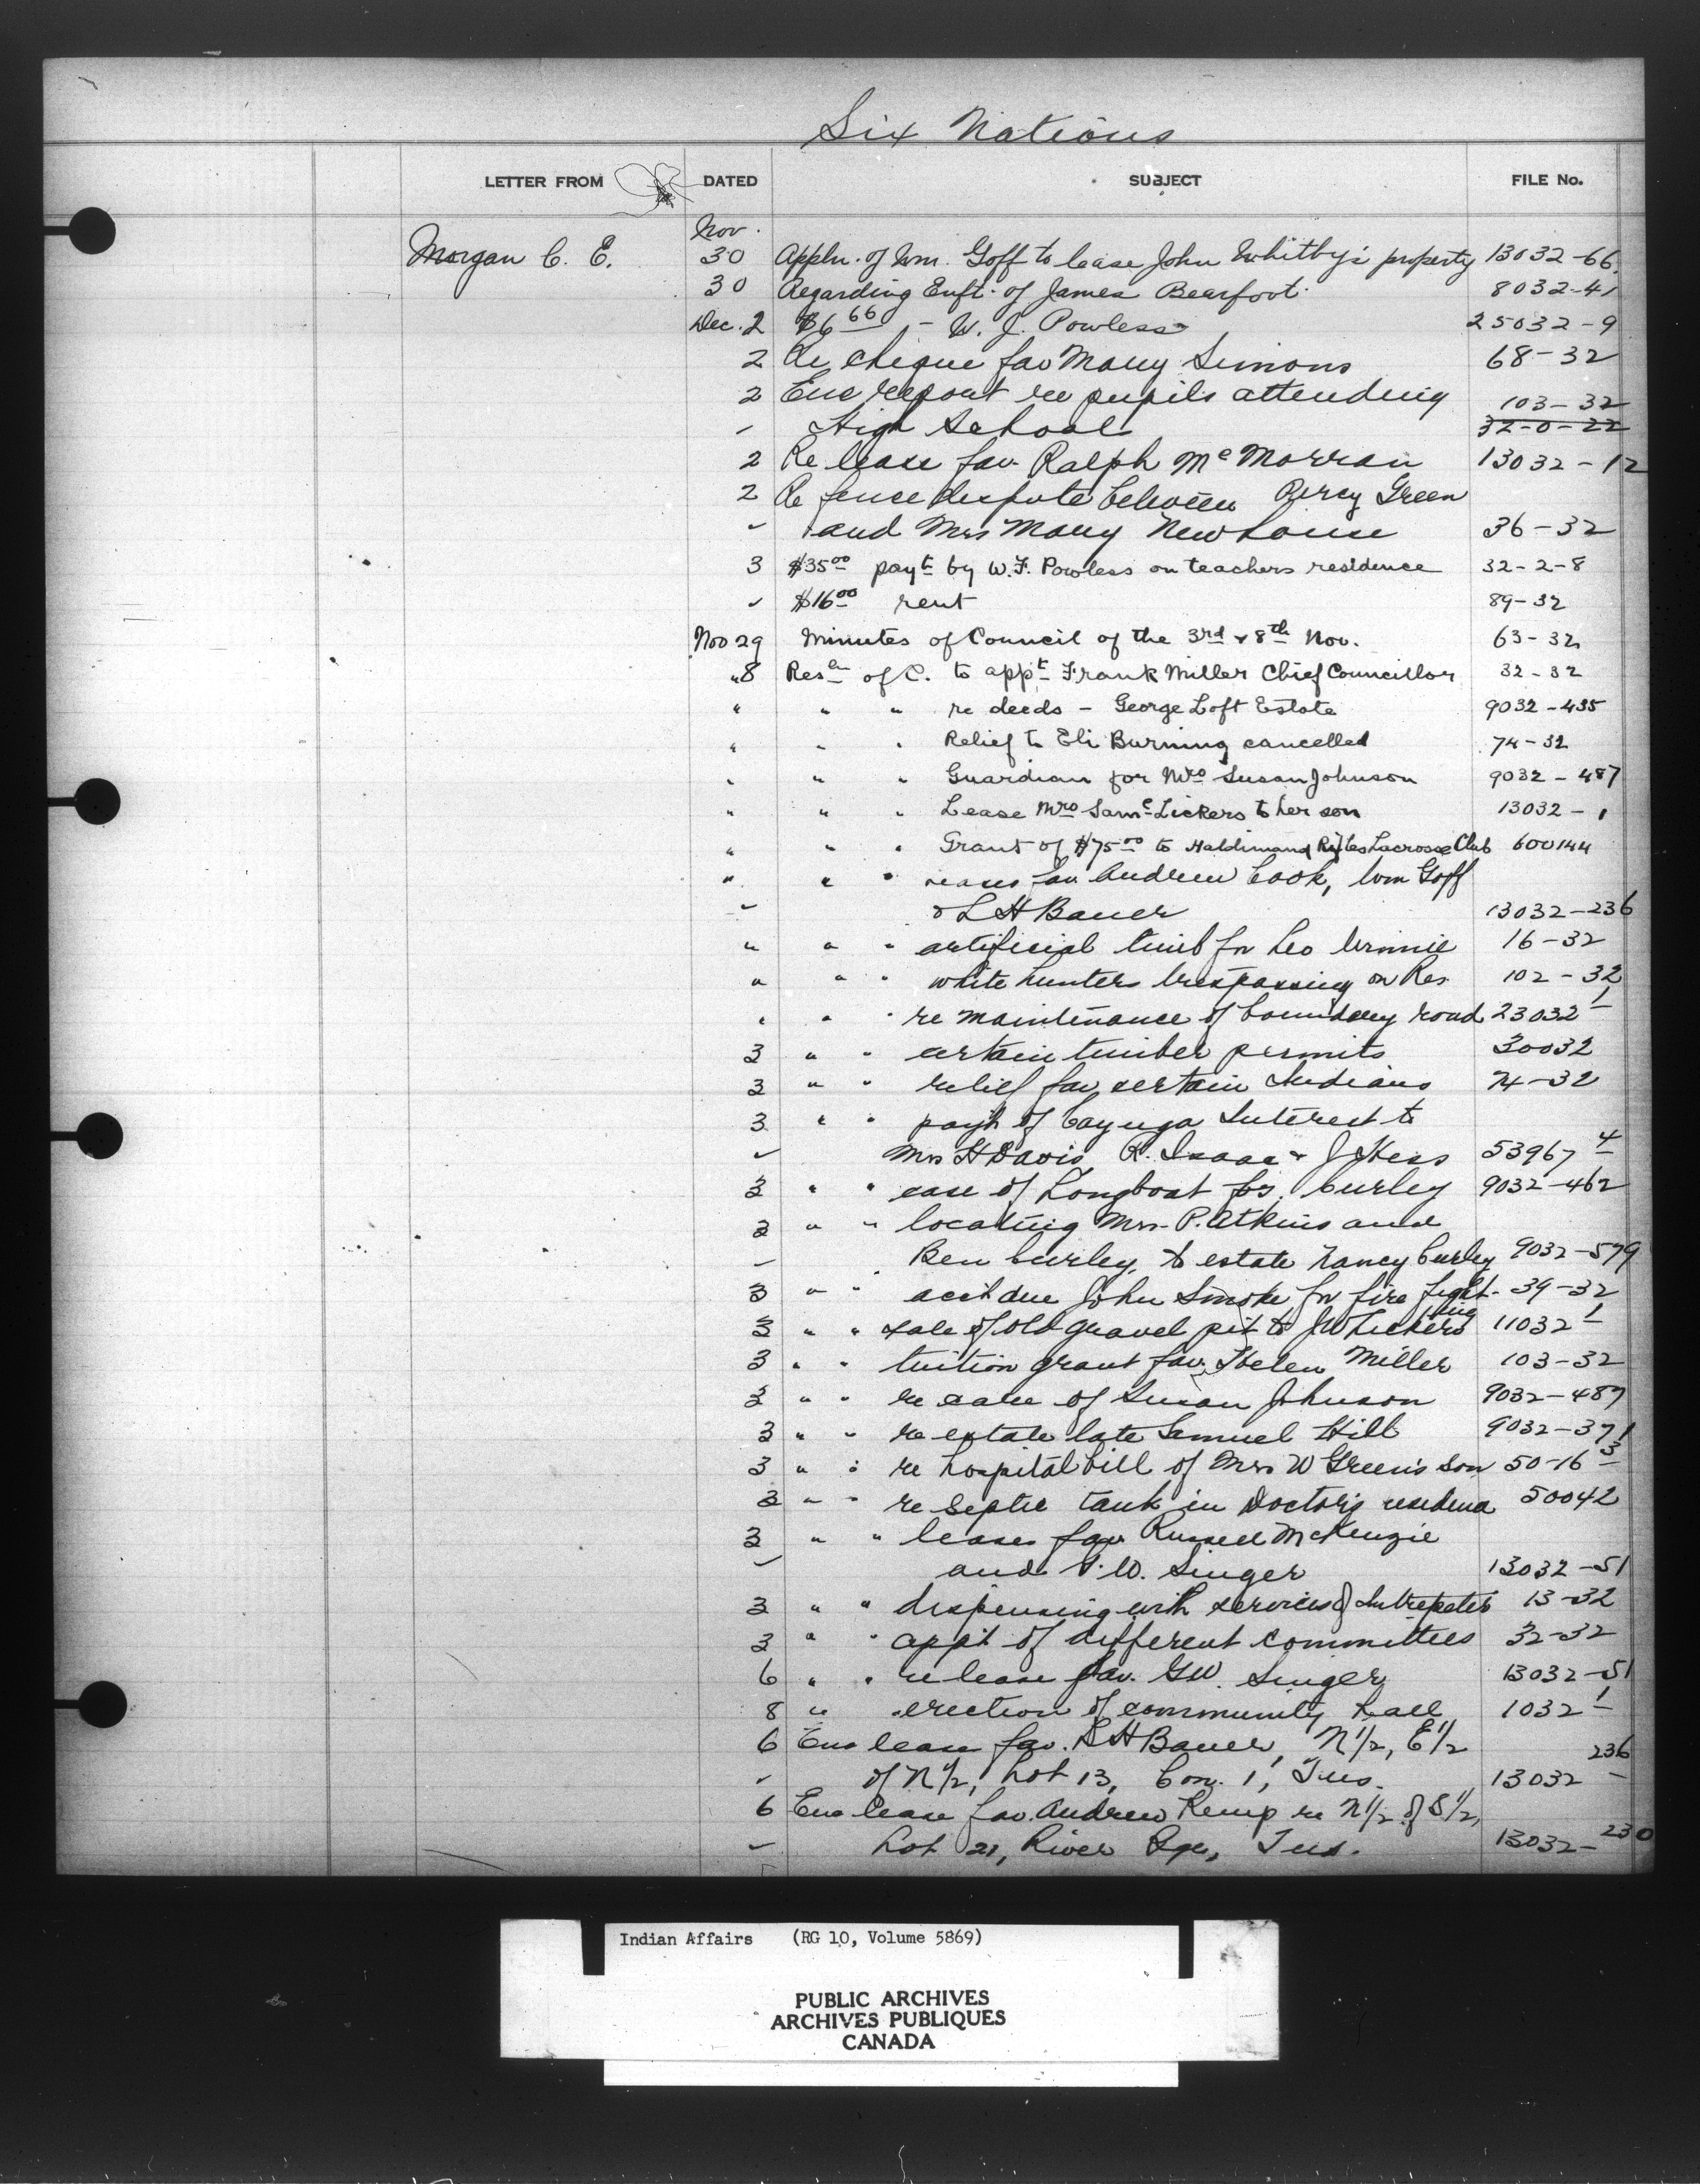 Six Nations
LETTER FROM DATED SUBJECT FILE No.
Nov.
Morgan C. E. 30 Appln. of Wm. Goff to lease John Whitby's property 13032-66
30 Regarding Enft. of James Bearfoot. 8032-41
Dec. 2 $6 66 - W. J. Powless 25032-9
2 Re cheque fav Mary Simons 68-32
2 Enc report re pupils attending 103-32
✓ High School 32-0-22
2 Re lease fav. Ralph McMorran 13032-12
2 Re fence dispute between Percy Green
✓ and Mrs Mary Newhouse 36-32
3 $35 00 payt by W. F. Powless on teachers residence 32-2-8
✓ $16 00 rent 89-32
Nov 29 Minutes of Council of the 3rd & 8th Nov. 63-32
"8 Resln of C. to appt Frank Miller Chief Councillor 32-32
" " " re deeds - George Loft Estate 9032-435
" " " Relief to Eli Burning cancelled 74-32
" " " Guardian for Mrs Susan Johnson 9032-487
" " " Lease Mrs Saml Lickers to her son 13032-1
" " " Grant of $75 00 to Haldimand Rifles Lacrosse Club 600144
" " " leases fav Andrew Cook, Wm Goff
✓ & L H Bauer 13032-236
" " " artificial limb for Leo 16-32
" " " white hunters trespassing on Res 102-32
" " " re maintenance of boundary road 23032 1
3 " " certain timber permits 30032
3 " " relief fav certain Indians 74-32
3 " " payt of Cayuga Interest to
✓ Mrs H Davis, R. Isaac & J Hess 53967 4
3 " " case of Longboat vs. Curley 9032-462
3 " " locating Mrs. P. Atkins and
✓ Ben Curley, to estate Nancy Curley 9032-579
3 " " acct due John Smoke for fire fight- 39-32
ing
3 " " sale of old gravel pit to J W Lickers 11032 1
3 " " tuition grant fav. Helen Miller 103-32
3 " " re case of Susan Johnson 9032-487
3 " " re estate late Samuel Hill 9032-371
3 " " re hospital bill of Mrs W Green's son 50-16 3
3 " " re Septic tank in Doctor's residence 50042
3 " " leases fav Russell McKenzie
✓ and W. Singer 13032-51
3 " " dispensing with services of Interpeter 13-32
3 " " appt of different committees 32-32
6 " " re lease fav. G W. Singer 13032-51
8 " " erection of community hall 1032 1
6 Enc lease fav. L H Bauer, N 1/2, E 1/2 236
✓ of N 1/2, Lot 13, Con. 1, Tus. 13032 -
6 Enc lease fav. Andrew Kemp re N 1/2 of S 1/2,
✓ Lot 21, River Rge, Tus. 13032-230
Indian Affairs (RG 10, Volume 5869)
PUBLIC ARCHIVES
ARCHIVES PUBLIQUES
CANADA